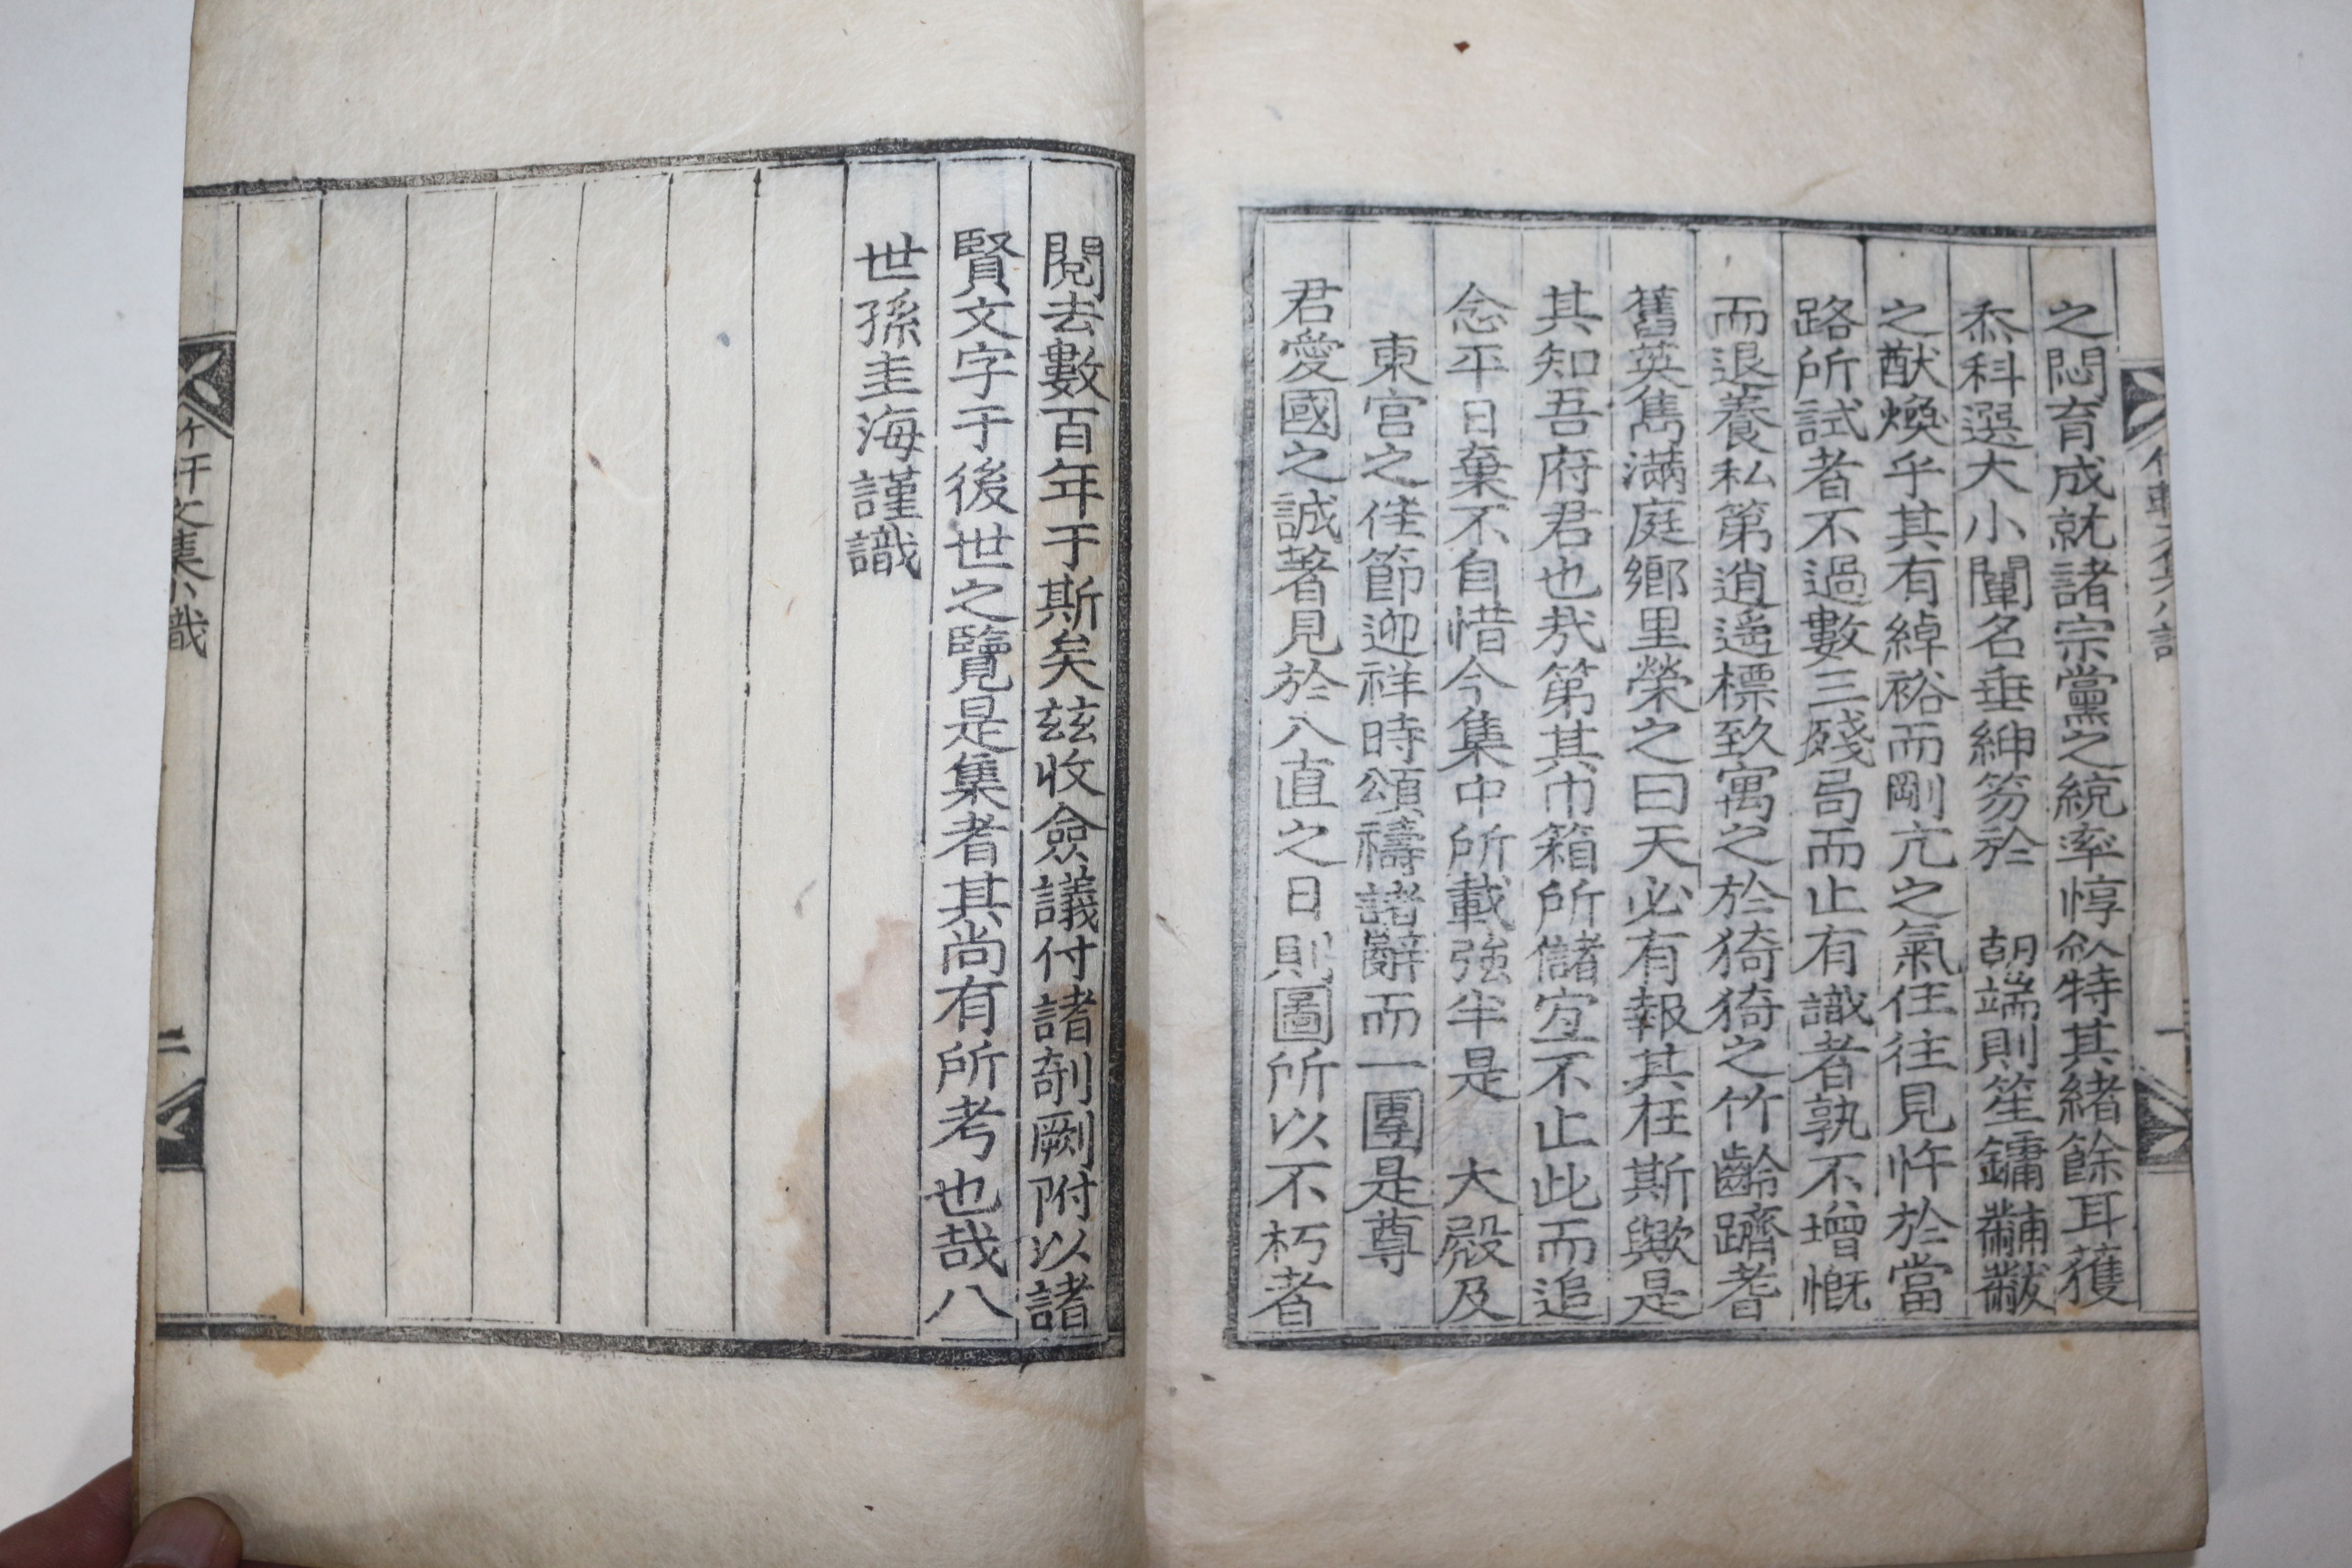 之悶育成就諸宗黨之統率惇敘特其緖餘耳獲
忝科選大小闈名垂紳笏於 朝端則笙鏞黼黻
之猷煥乎其有綽裕而剛亢之氣徃徃見忤於當
路所試者不過數三殘局而止有識者孰不增慨
而退養私第逍遥標致寓之於猗猗之竹齡躋耆
舊英雋滿庭鄉里榮之曰天必有報其在斯歟是
其知吾府君也㢤第其巾箱所儲宜不止此而追
念平日棄不自惜今集中所載強半是 大殿及
東宮之徃節迎祥時頌禱諸辭而一團是尊
君愛國之誠著見於八直之日則圖所以不朽者
閱去數百年于斯矣玆收僉議付諸剞劂附以諸
賢文字于後世之覽是集者其尚有所考也哉八
世孫圭海謹識
竹軒文集 識
二